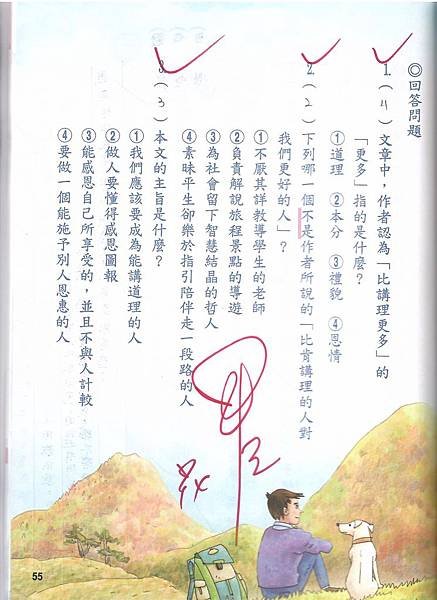 ◎回答問題
1.(4)文章中，作者認為「比講理更多」的
「更多」指的是什麼？
①道理 ②本分 ③禮貌 ④恩情
2.(2)下列哪一個不是作者所說的「比肯講理的人對
我們更好的人」？
①不厭其詳教導學生的老師
②負責解說旅程景點的導遊
③為社會留下智慧結晶的哲人
④素昧平生卻樂於指引陪伴走一段路的人
3.(3)本文的主旨是什麼？
①我們應該要成為能講道理的人
②做人要懂得感恩圖報
③能感恩自己所享受的，並且不與人計較
④要做一個能施予別人恩惠的人
55